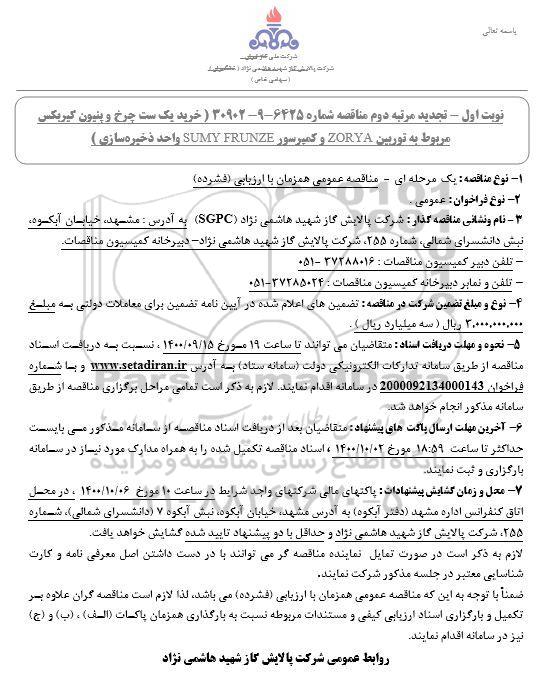 باسمه تعالی
شرکت ملی گاز ایران
شرکت پالایش گاز شهید هاشمی نژاد ( خانگیران )
( سهامی خاص )
نوبت اول – تجدید مرتبه دوم مناقصه شماره ۶۴۲۵-۹- ۳۰۹۰۲ ( خرید یک ست چرخ و پنیون گیربکس
مربوط به توربین ZORYA و کمپرسور SUMY FRUNZE واحد ذخیره‌سازی )
۱- نوع مناقصه : یک مرحله ای - مناقصه عمومی همزمان با ارزیابی (فشرده)
۲- نوع فراخوان: عمومی .
۳ – نام ونشانی مناقصه گذار : شرکت پالایش گاز شهید هاشمی نژاد (SGPC) به آدرس : مشهد، خیابان آبکوه،
نبش دانشسرای شمالی، شماره ۲۵۵، شرکت پالایش گاز شهید هاشمی نژاد– دبیرخانه کمیسیون مناقصات.
– تلفن دبیر کمیسیون مناقصات : ۳۷۲۸۸۰۱۶ -۰۵۱
– تلفن و نمابر دبیرخانه کمیسیون مناقصات : ۳۷۲۸۵۰۲۴-۰۵۱
۴- نوع و مبلغ تضمین شرکت در مناقصه : تضمین های اعلام شده در آیین نامه تضمین برای معاملات دولتی به مبلغ
۳.۰۰۰.۰۰۰.۰۰۰ ریال ( سه میلیارد ریال ) .
۵- نحوه و مهلت دریافت اسناد : متقاضیان می توانند تا ساعت ۱۹ مورخ ۱۴۰۰/۰۹/۱۵ ، نسبت به دریافت اسناد
مناقصه از طریق سامانه تدارکات الکترونیکی دولت (سامانه ستاد) به آدرس www.setadiran.ir و با شماره
فراخوان 2000092134000143 در سامانه اقدام نمایند. لازم به ذکر است تمامی مراحل برگزاری مناقصه از طریق
سامانه مذکور انجام خواهد شد.
۶- آخرین مهلت ارسال پاکت های پیشنهاد : متقاضیان بعد از دریافت اسناد مناقصه از سامانه مذکور می بایست
حداکثر تا ساعت ۱۸:۵۹ مورخ ۱۴۰۰/۱۰/۰۲ ، اسناد مناقصه تکمیل شده را به همراه مدارک مورد نیاز در سامانه
بارگزاری و ثبت نمایند.
۷- محل و زمان گشایش پیشنهادات : پاکتهای مالی شرکتهای واجد شرایط در ساعت ۱۰ مورخ ۱۴۰۰/۱۰/۰۶ ، در محل
اتاق کنفرانس اداره مشهد (دفتر آبکوه) به آدرس مشهد، خیابان آبکوه، نبش آبکوه ۷ (دانشسرای شمالی)، شماره
۲۵۵، شرکت پالایش گاز شهید هاشمی نژاد و حداقل با دو پیشنهاد تایید شده گشایش خواهد یافت.
لازم به ذکر است در صورت تمایل نماینده مناقصه گر می توانند با در دست داشتن اصل معرفی نامه و کارت
شناسایی معتبر در جلسه مذکور شرکت نمایند.
ضمناً با توجه به این که مناقصه عمومی همزمان با ارزیابی (فشرده) می باشد، لذا لازم است مناقصه گران علاوه بر
تکمیل و بارگزاری اسناد ارزیابی کیفی و مستندات مربوطه نسبت به بارگذاری همزمان پاکات (الف) ، (ب) و (ج)
نیز در سامانه اقدام نمایند.
روابط عمومی شرکت پالایش گاز شهید هاشمی نژاد